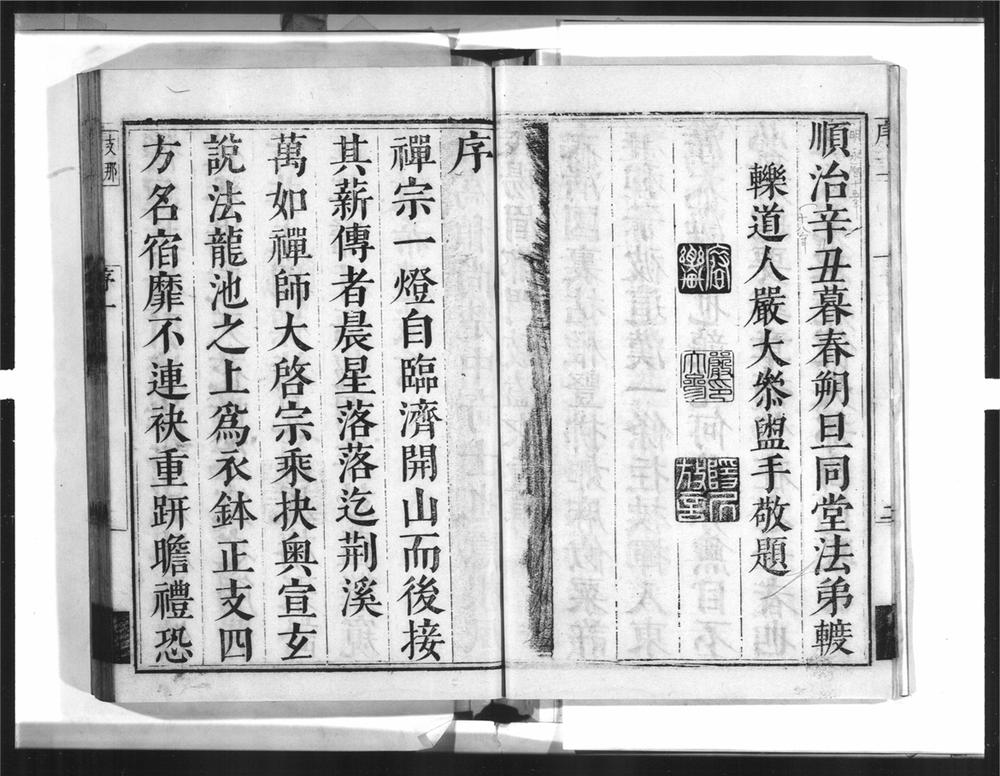 順治辛丑暮春朔旦同堂法弟轆
轢道人嚴大叅盥手敬題
序
禪宗一燈自臨濟開山而後接
其薪傳者晨星落落迄荆溪
萬如禪師大啓宗乘抉奥宣玄
說法龍池之上爲衣鉢正支四
方名宿靡不連袂重趼瞻禮恐
序一